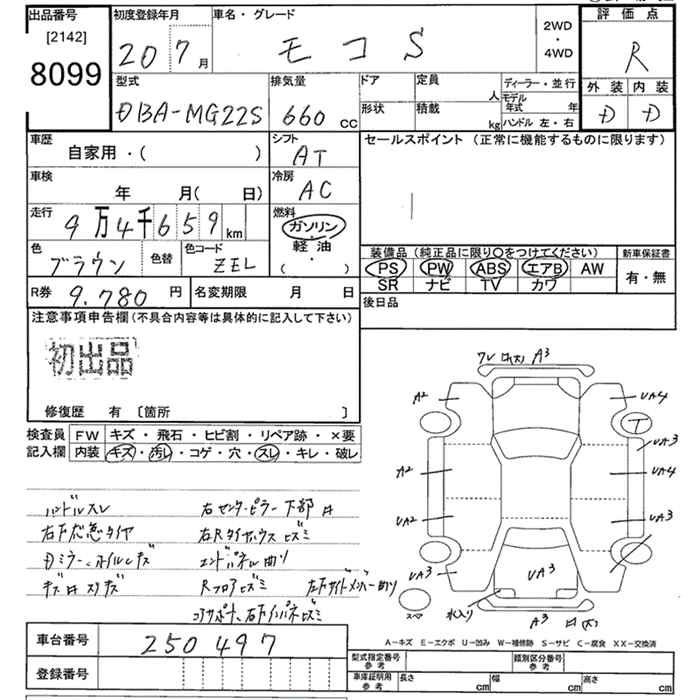 出品番号
[2142]
8099
初度登録年月
20 7 月
車名・グレード
モコ S
2WD
・
4WD
評価点
R
型式
DBA-MG22S
排気量
660 cc
ドア
定員
人
ディーラー・並行
モデル年式 年
形状
積載
kg
ハンドル 左・右
外装 内装
D D
車歴
自家用・( )
シフト
AT
セールスポイント (正常に機能するものに限ります)
車検
年 月( 日)
冷房
AC
走行
9万4千659 km
燃料
ガソリン・
軽油・
( )
色
ブラウン
色替
色コード
ZEL
装備品(純正品に限り〇をつけてください)
PS PW ABS エアB AW
SR ナビ TV カワ
新車保証書
有・無
R券
9.780 円
名変期限 月 日
後日品
注意事項申告欄(不具合内容等は具体的に記入して下さい)
初出品
修復歴 有 [箇所 ]
検査員
記入欄
FW キズ・飛石・ヒビ割・リペア跡・×要
内装 キズ・汚れ・コゲ・穴・スレ・キレ・破レ
ハンドルスレ
右センターピラー下部
右F応急タイヤ
右Rタイヤハウスヒズミ
エンドパネル曲り
Rフロアヒズミ
A3
A2
UA4
UA3
A2
UA4
UA2
UA3
UA3
UA3
水入り
A3
スペア
A-キズ E-エクボ U-凹み W-補修跡 S-サビ C-腐食 XX-交換済
車台番号
250497
登録番号
型式指定番号
参考
類別区分番号
参考
車庫証明用
参考
長さ cm
幅 cm
高さ cm